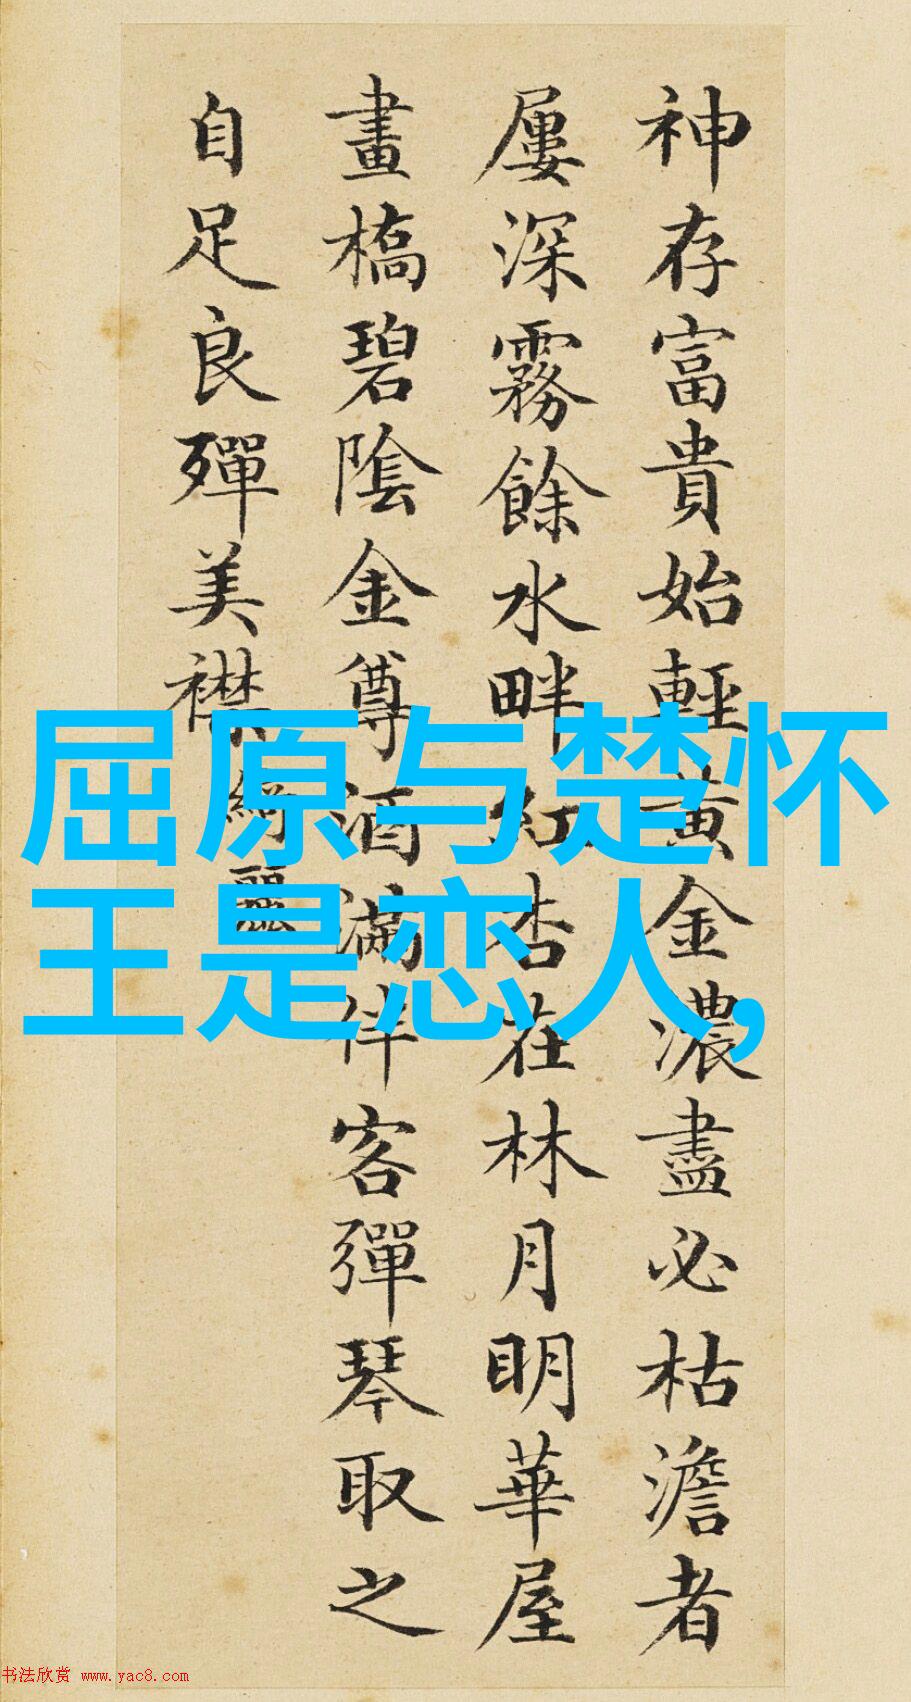 神存富貴始輕黃金濃盡必枯澹者
屢深霧餘水畔紅杏在林月明華屋
畫橋碧陰金尊酒滿伴客彈琴取之
自足良殫美襟綺麗
屈原与楚怀
王是恋人,
书法欣赏 www.yac8.com